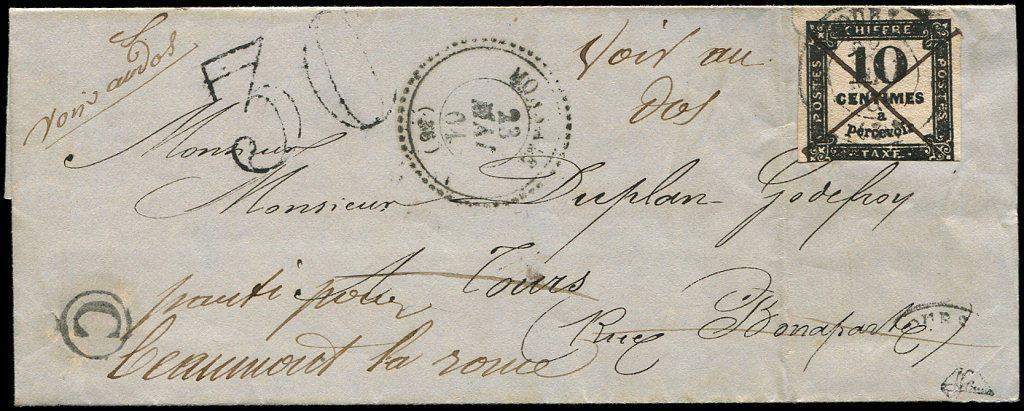 Voir au dos
30
Voir au
dos
CHIFFRE
POSTES
10
CENTIMES
à
Percevoir
POSTES
TAXE
23
JANV
(36)
Monsieur
Monsieur Duplan-Godefroy
Tours
Rue Bonaparte
parti pour
beaumont la ronce
C
TOURS